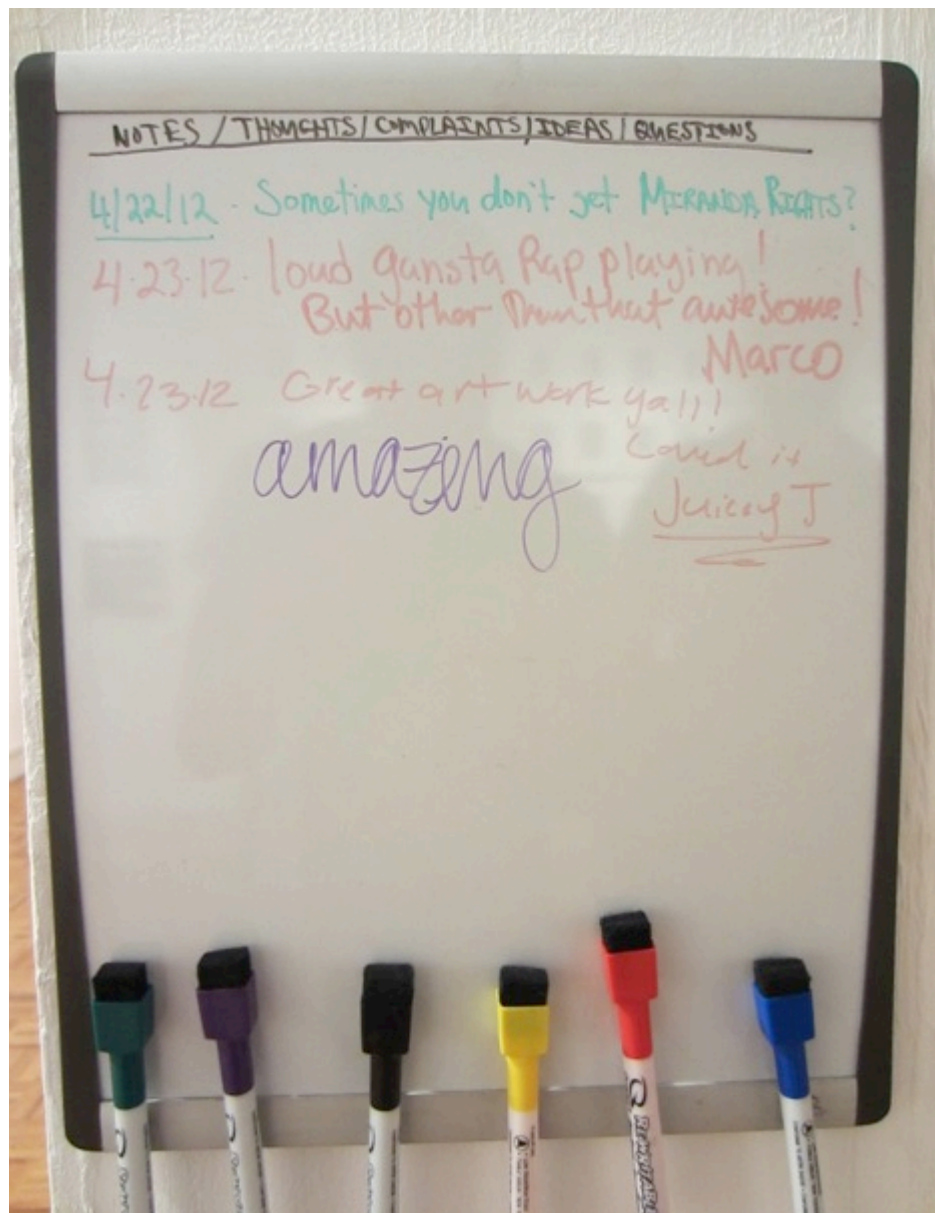 NOTES / THOUGHTS / COMPLAINTS / IDEAS / QUESTIONS
4/22/12 - Sometimes you don't get MIRANDA RIGHTS?
4.23.12. loud gansta Rap playing!
But other Than that awesome!
Marco
4.23.12 Great art work yall!
Loved it
amazing
Juicey J